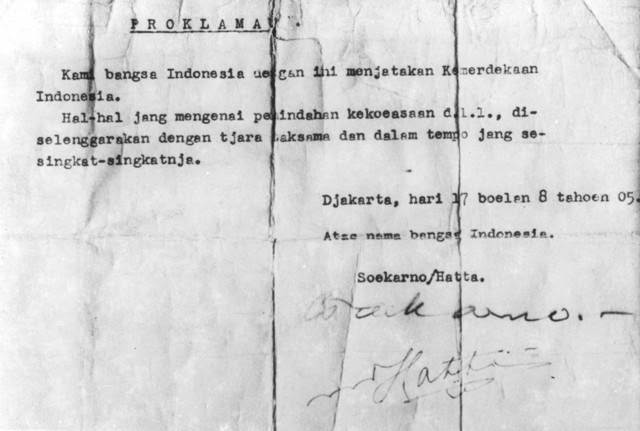 PROKLAMASI.
Kami bangsa Indonesia dengan ini menjatakan Kemerdekaan
Indonesia.
Hal-hal jang mengenai pemindahan kekoeasaan d.l.l., di-
selenggarakan dengan tjara saksama dan dalam tempo jang se-
singkat-singkatnja.
Djakarta, hari 17 boelan 8 tahoen 05.
Atas nama bangsa Indonesia.
Soekarno/Hatta.
Soekarno.-
Hatta